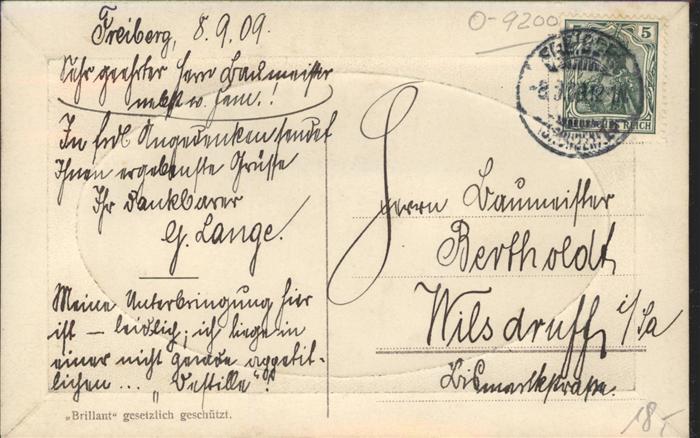 O-9200
Freiberg, 8.9.09.
Sehr geehrter Herr Baumeister
nebst w. Fam.!
In frdl Angedenken sendet
Ihnen ergebenste Grüsse
Ihr dankbarer
G. Lange.
Meine Unterbringung hier
ist – leidlich; ich liege in
einer nicht gerade appetit-
lichen ... „Destille"!
„Brillant" gesetzlich geschützt.
5 5
REICH
Herrn Baumeister
Bertholdt
Wilsdruff i/Sa
Bismarkstrasse.
18,-